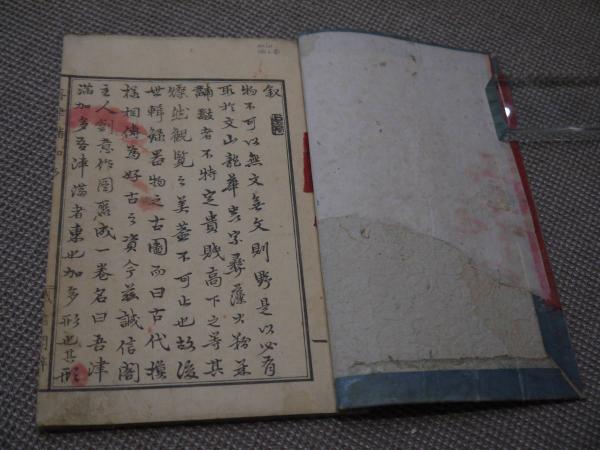 叙
物不可以無文無文則野是以必有
取於文山龍華虫宗彝藻火粉米
黼黻者不特定貴賤高下之等其
燦然観覧之美蓋不可止也故後
世輯録器物之古図而曰古代模
様相傳為好古之資今茲誠信閣
主人創意作図麁成一巻名曰吾津
満加多吾津満者東也加多形也其形